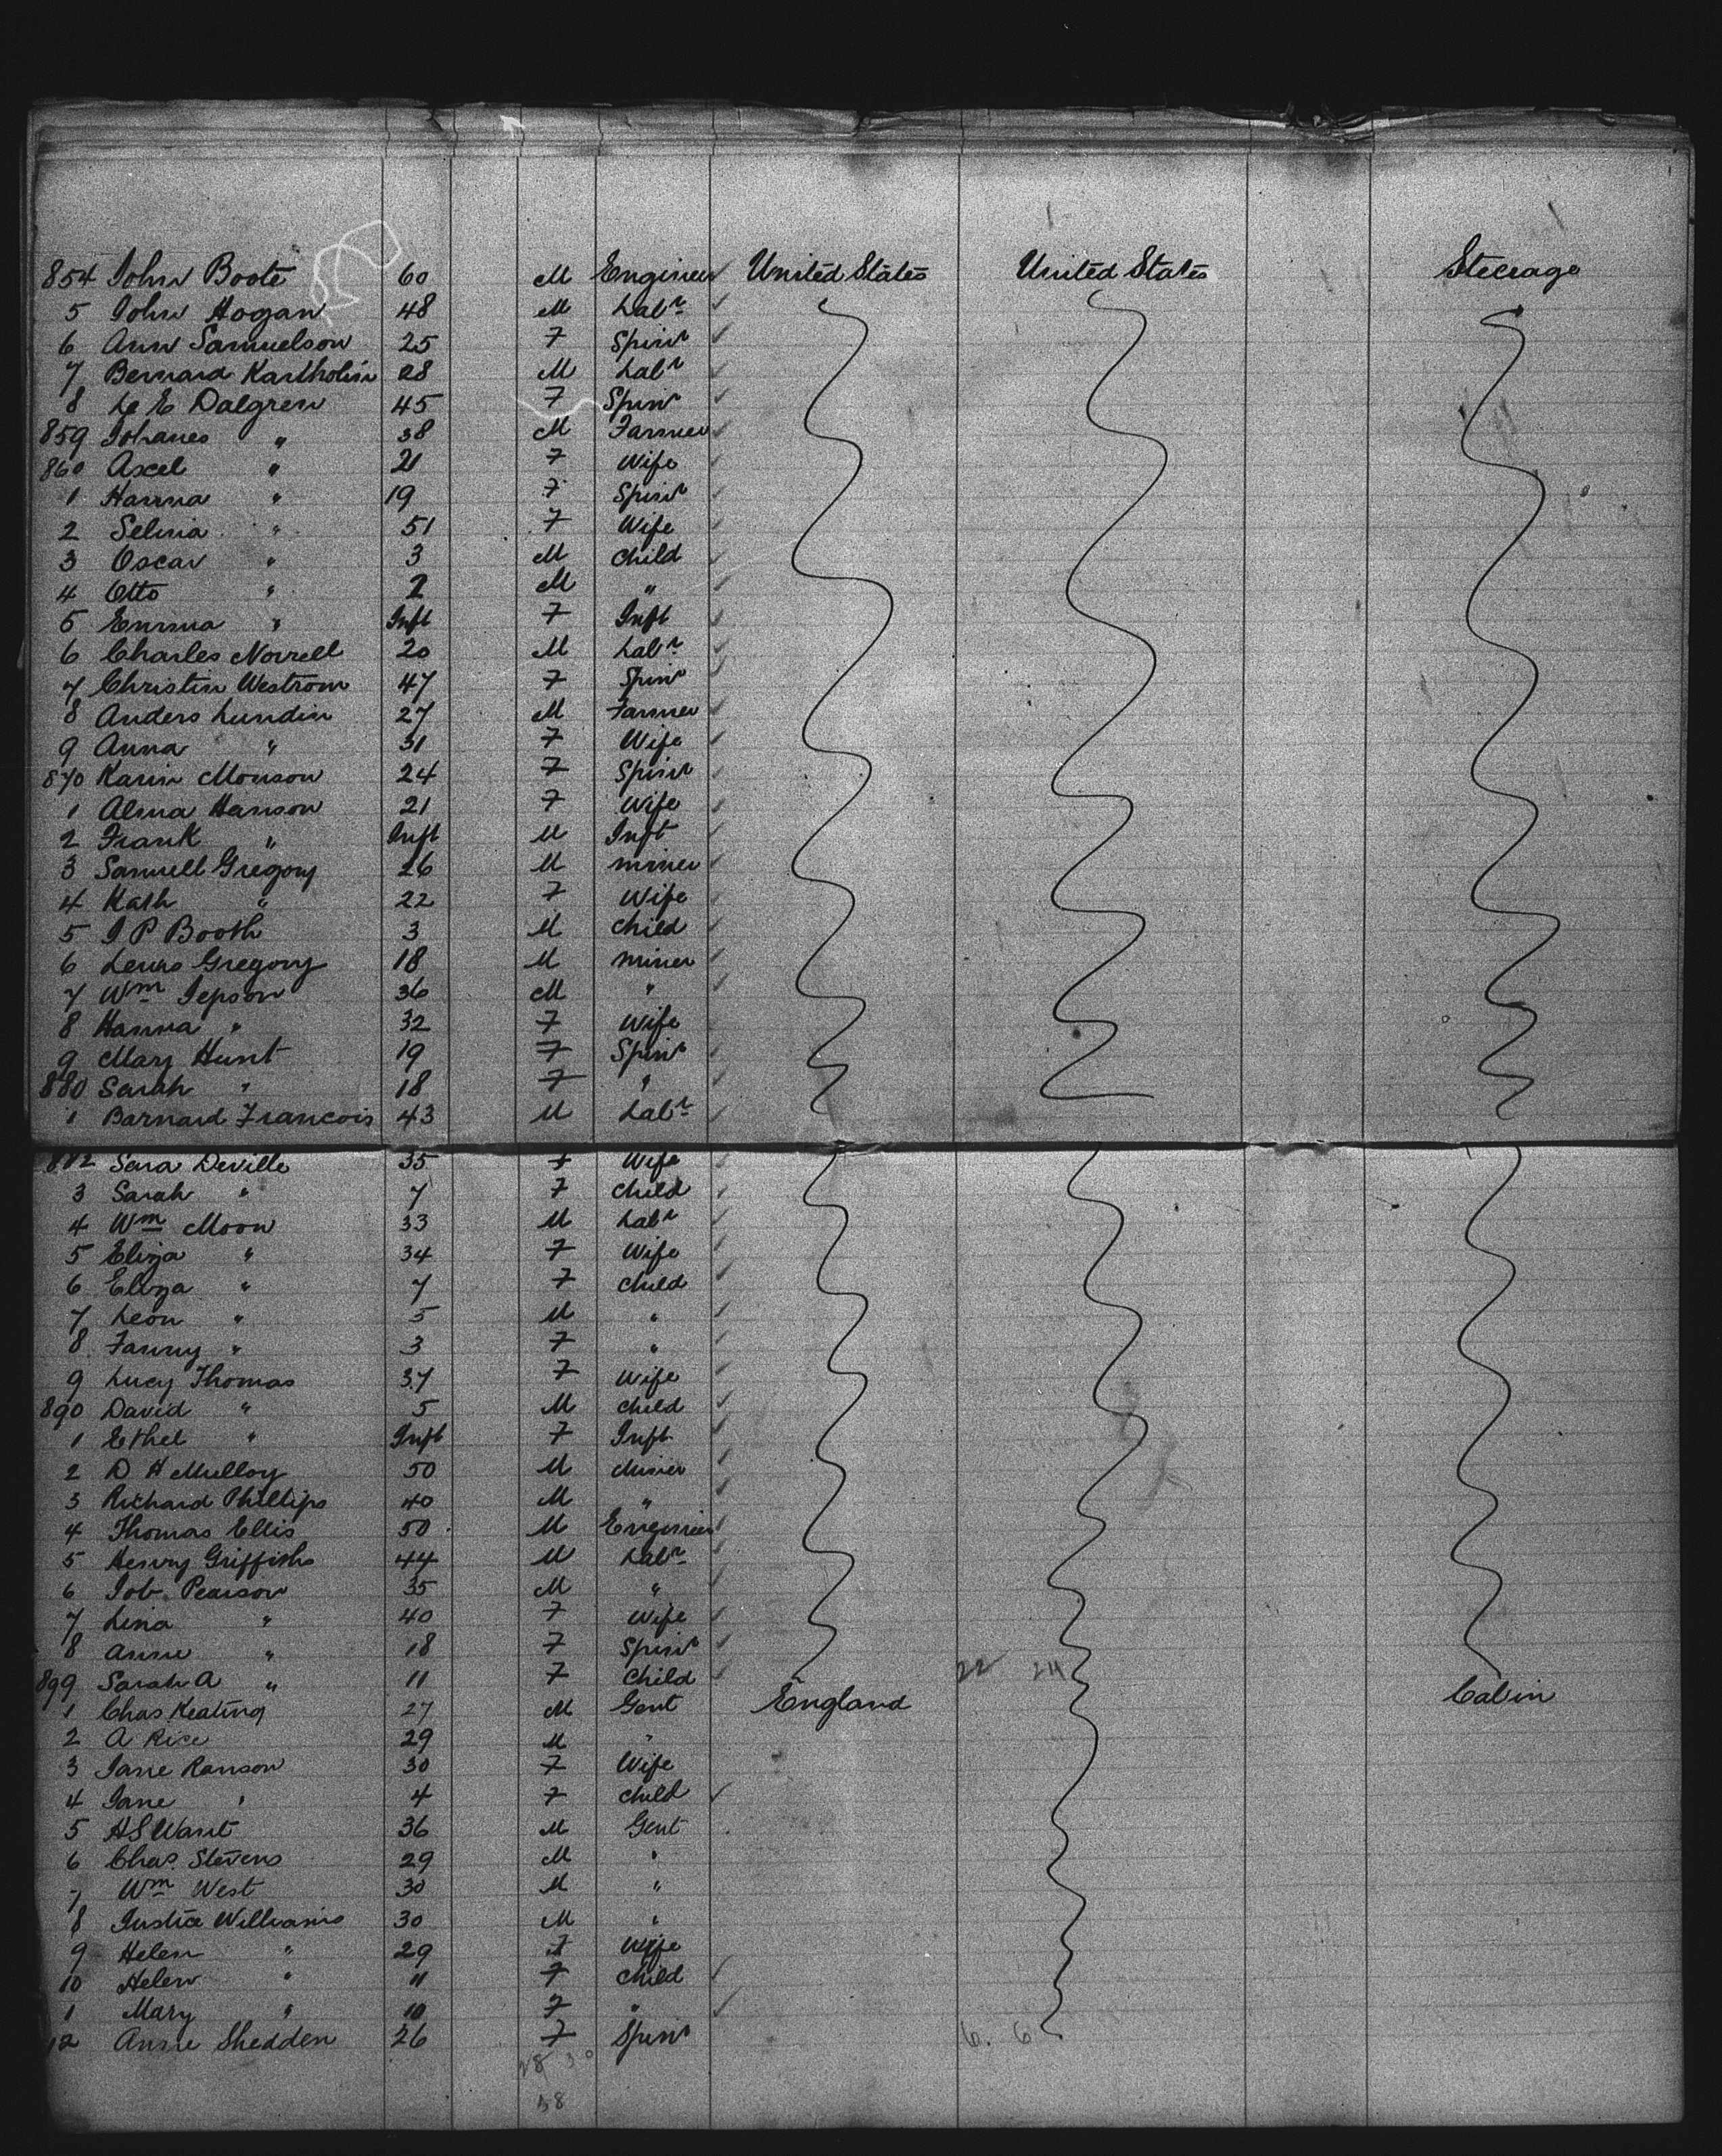 854 John Boote 60 M Engineer United States United States Steerage
5 John Hogan 48 M Labr
6 Ann Samuelson 25 F Spinr
7 Bernard Kartholin 28 M Labr
8 Dalgren 45 F Spinr
859 Johanes " 38 M Farmer
860 Axcel " 21 F Wife
1 Hanna " 19 F Spinr
2 Selma " 51 F Wife
3 Oscar " 3 M Child
4 Otto " 2 M "
5 Emma " Inft F Inft
6 Charles Norrell 20 M Labr
7 Christin Westrom 47 F Spinr
8 Anders Lundin 27 M Farmer
9 Anna " 31 F Wife
870 Karin Monson 24 F Spinr
1 Alma Hanson 21 F Wife
2 Frank " Inft M Inft
3 Samuell Gregory 26 M miner
4 Kath " 22 F Wife
5 J P Booth 3 M Child
6 Lewis Gregory 18 M miner
7 Wm Jepson 36 M "
8 Hanna " 32 F Wife
9 Mary Hunt 19 F Spinr
880 Sarah " 18 F "
1 Barnard Francois 43 M Labr
882 Sara Deville 35 F Wife
3 Sarah " 7 F Child
4 Wm Moon 33 M Labr
5 Eliza " 34 F Wife
6 Eliza " 7 F Child
7 Leon " 5 M "
8 Fanny " 3 F "
9 Lucy Thomas 37 F Wife
890 David " 5 M Child
1 Ethel " Inft F Inft
2 D H Mulloy 50 M Miner
3 Richard Phillips 40 M "
4 Thomas Ellis 50 M Engineer
5 Henry Griffiths 44 M Labr
6 Job Pearson 35 M "
7 Lina " 40 F Wife
8 Anne " 18 F Spinr
899 Sarah A " 11 F Child 22 24
1 Chas Keating 27 M Gent England Cabin
2 A Rice 29 M "
3 Jane Ranson 30 F Wife
4 Jane " 4 F Child
5 H S Want 36 M Gent
6 Chas. Stevens 29 M "
7 Wm West 30 M "
8 Justice Williams 30 M "
9 Helen " 29 F Wife
10 Helen " 11 F Child
1 Mary " 10 F "
12 Anne Shedden 26 F Spinr 6. 6
28 30
58